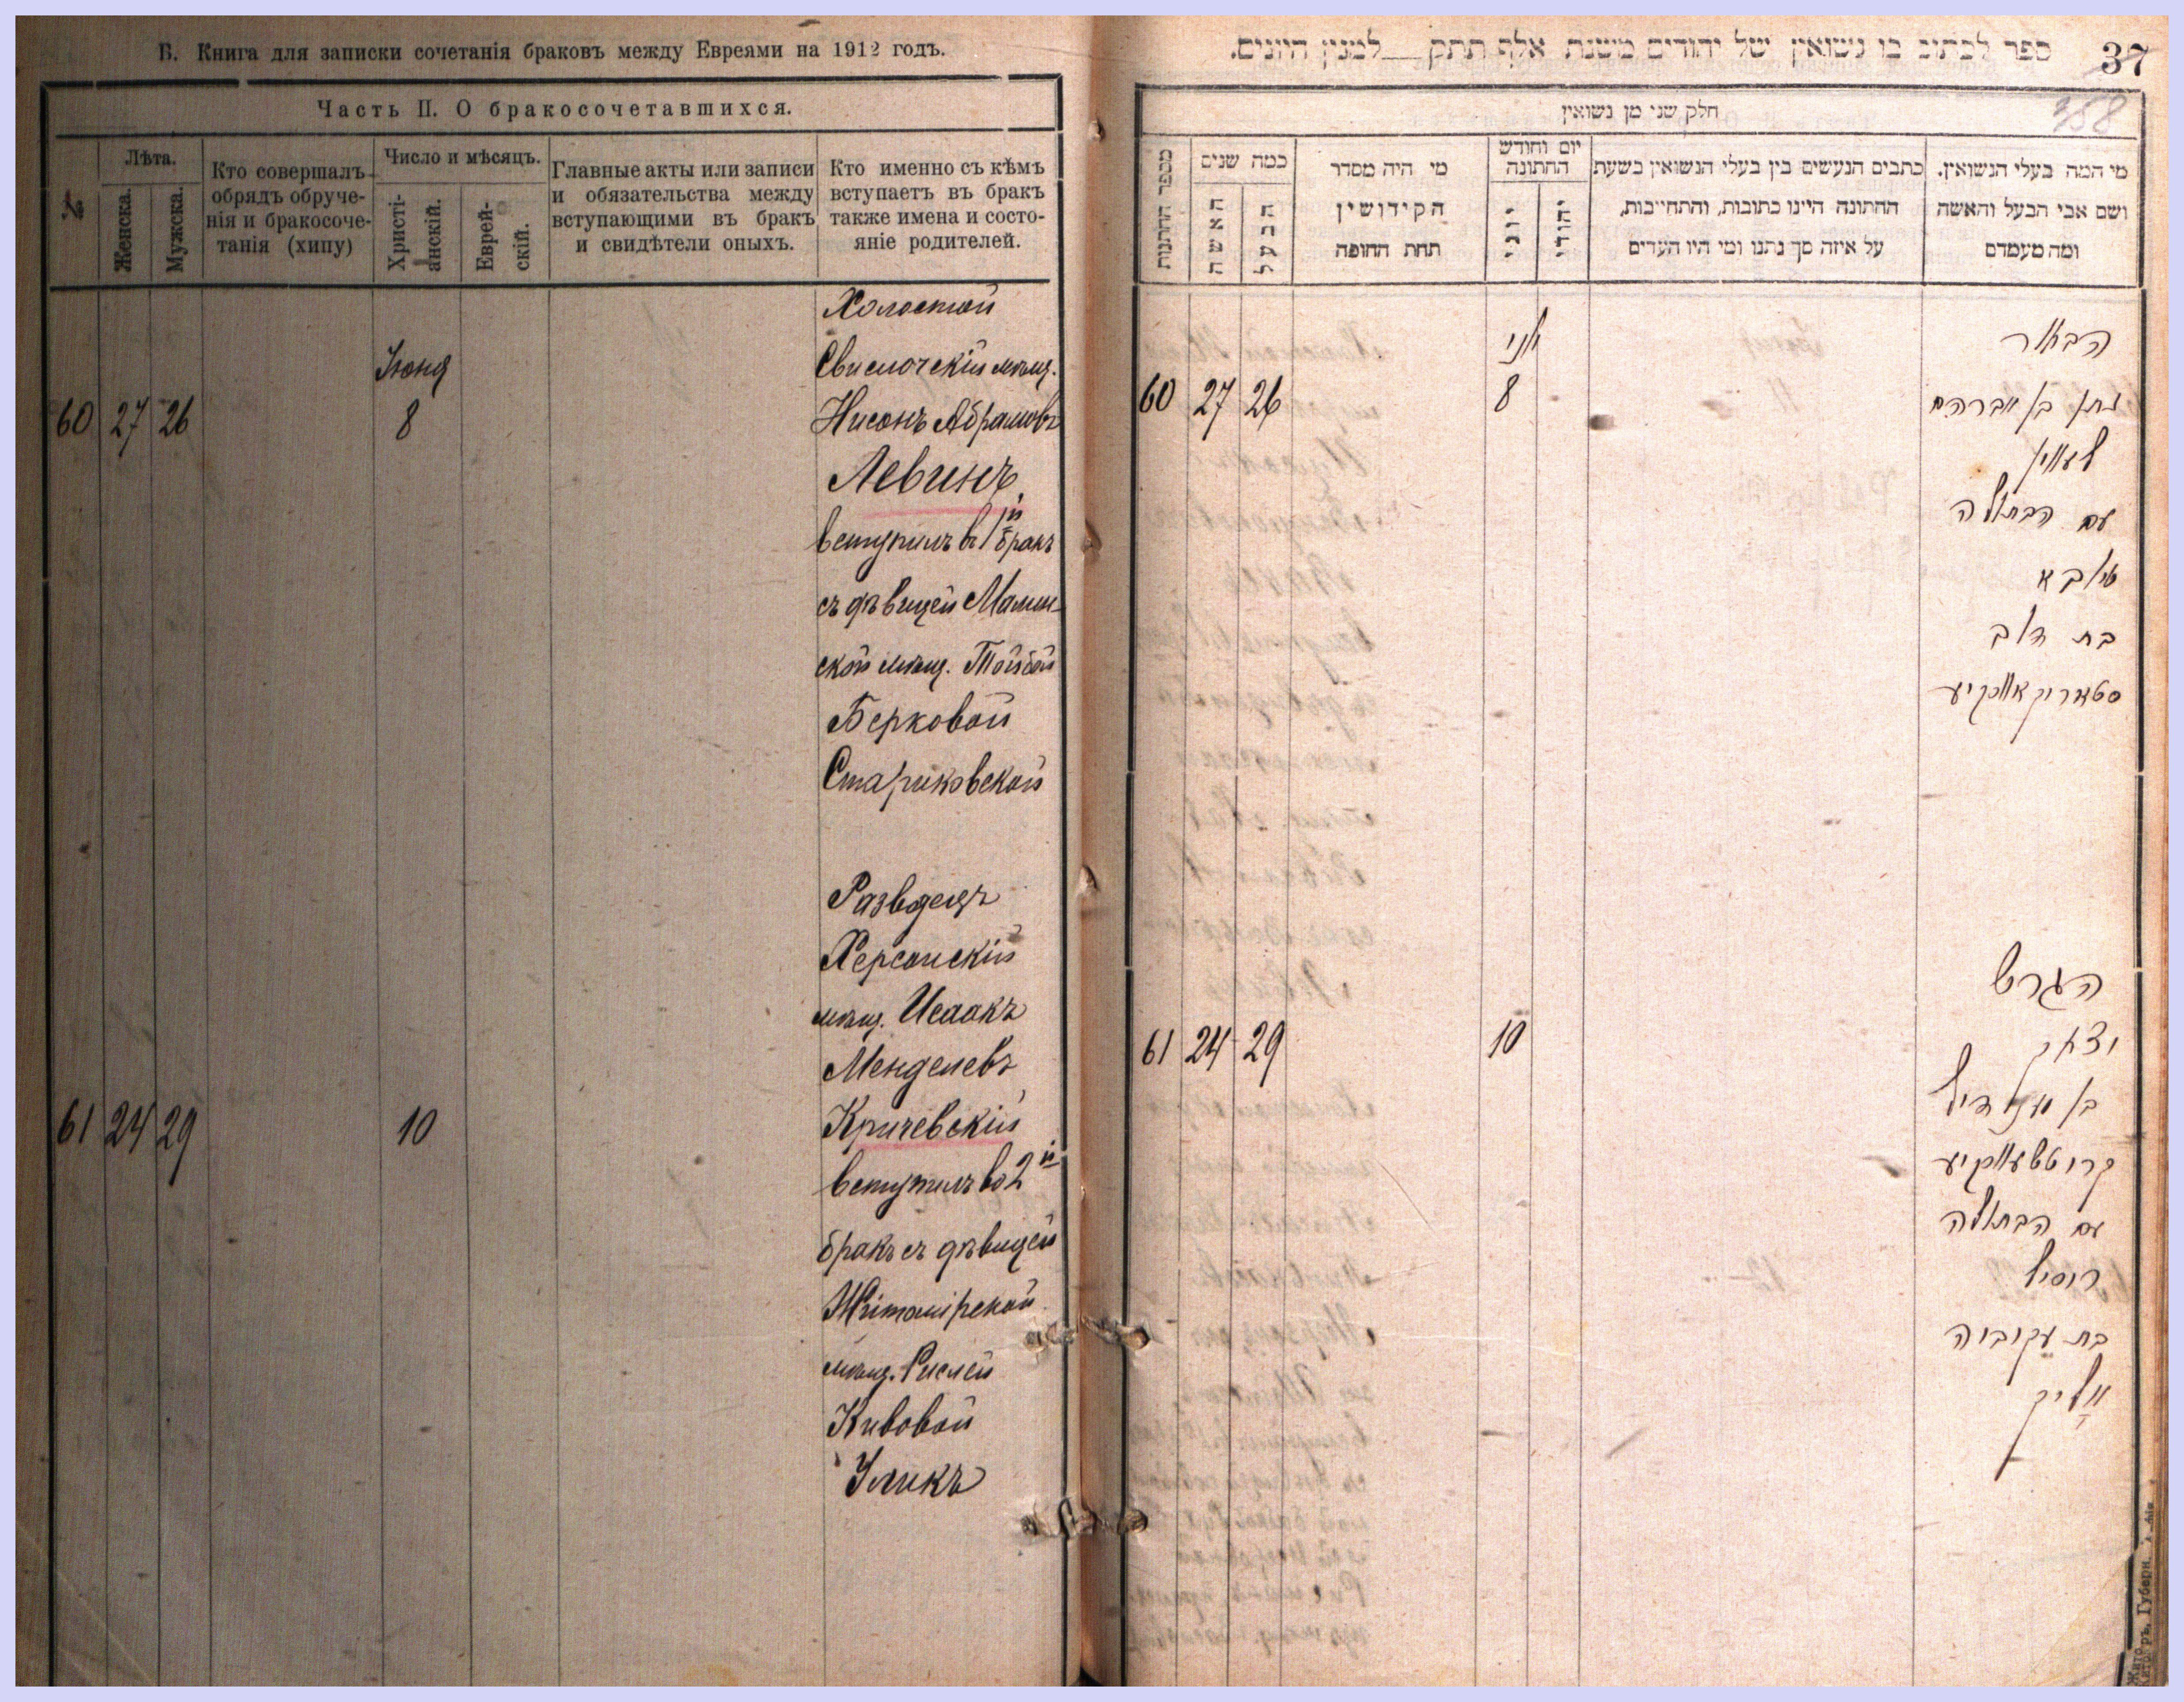 Б. Книга для записки сочетанія браковъ между Евреями на 1912 годъ.
Часть II. О бракосочетавшихся.
№
Лѣта.
Женска.
Мужска.
Кто совершалъ
обрядъ обруче-
нія и бракосоче-
танія (хипу)
Число и мѣсяцъ.
Христі-
анскій.
Еврей-
скій.
Главные акты или записи
и обязательства между
вступающими въ бракъ
и свидѣтели оныхъ.
Кто именно съ кѣмъ
вступаетъ въ бракъ
также имена и состо-
яніе родителей.
Холостой
Свислочскій мѣщ.
Іюня
60 27 26 8 Нисонъ Абрамовъ
Левинъ
вступилъ в 1й бракъ
съ дѣвицей Мамин-
ской мѣщ. Тойбой
Берковой
Стариковской
Разведецъ
Херсонскій
мѣщ. Исаакъ
Менделевъ
61 24 29 10 Кричевскій
вступилъ во 2й
бракъ съ дѣвицей
Житомірской
мѣщ. Рислей
Кивовой
Уликъ
ספר לכתוב בו נשואין של יהודים משנת אלף תתק__למנין היונים.
37
358
חלק שני מן נשואין
מספר החתנות
כמה שנים
האשה
הבעל
מי היה מסדר
הקידושין
תחת החופה
יום וחודש
החתונה
יוני
יהודי
כתבים הנעשים בין בעלי הנשואין בשעת
החתונה היינו כתובות, והתחייבות,
על איזה סך נתנו ומי היו העדים
מי המה בעלי הנשואין.
ושם אבי הבעל והאשה
ומה מעמדם
הבאור
יוני
60 27 26 8 נתן בן אברהם
לעווין
עם הבתולה
טויבא
בת דוב
סטאריקאווסקיע
הגרוש
61 24 29 10 יצחק
בן מענדיל
קריטשעווסקיע
עם הבתולה
ריסיל
בת עקיביה
אוליק